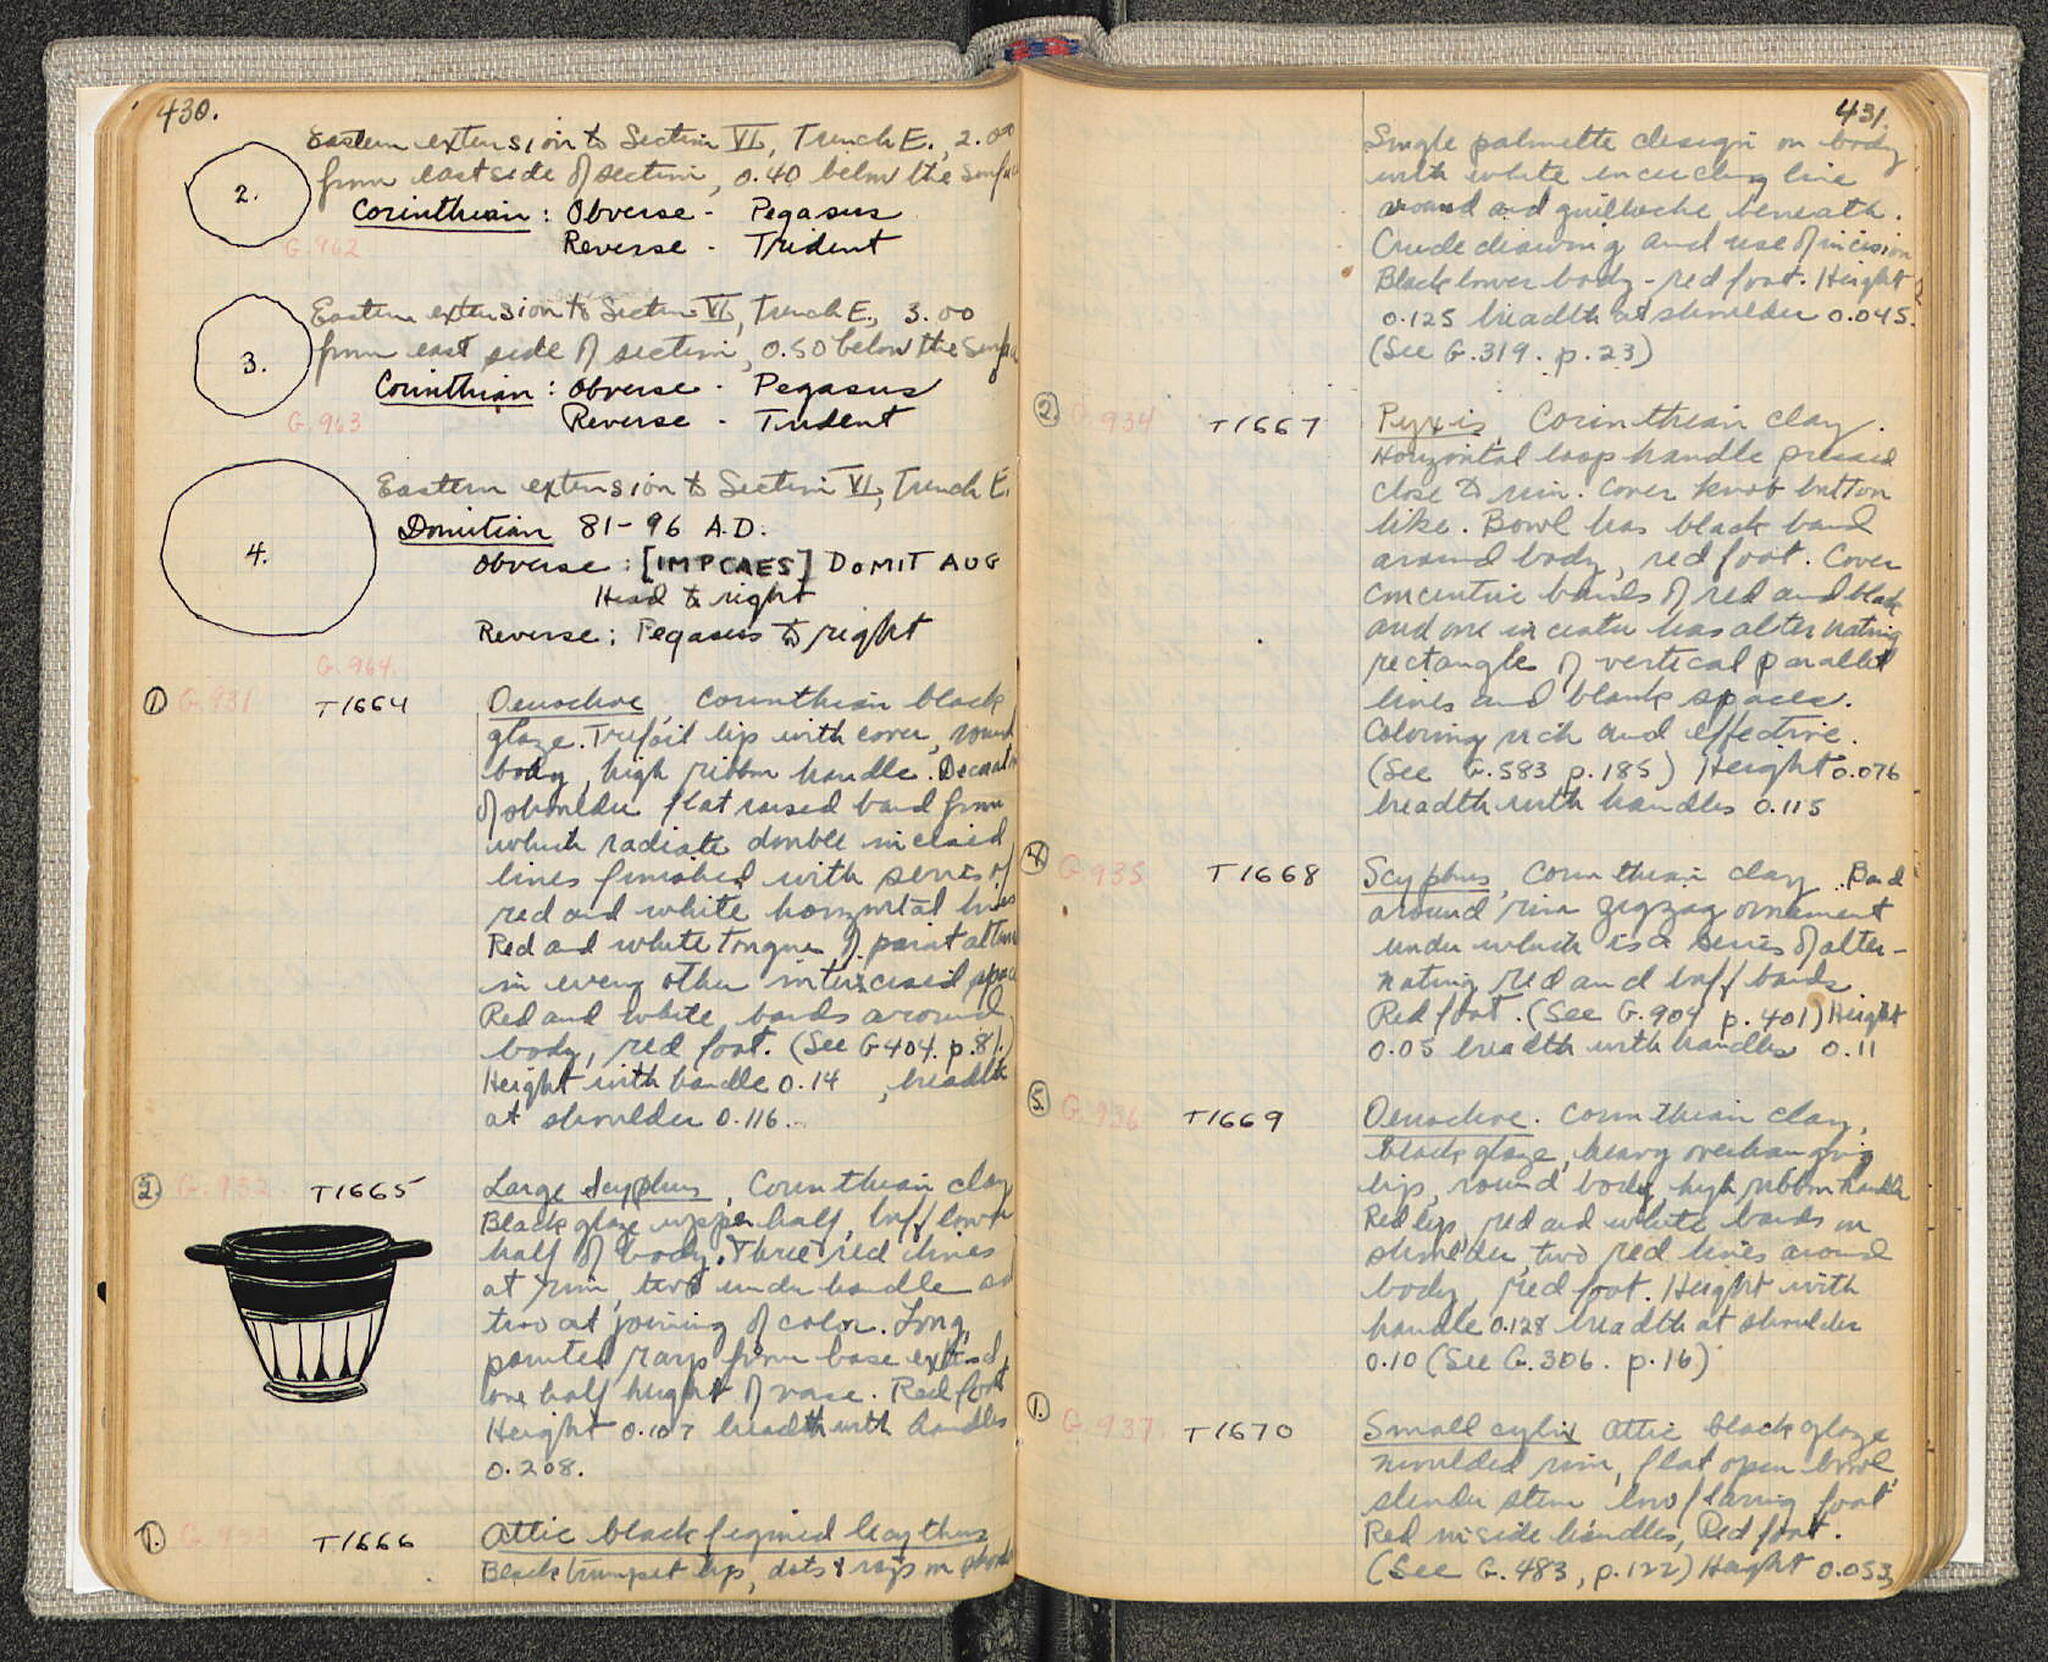 430.
Eastern extension to Section VI, Trench E., 2.00
from east side of section, 0.40 below the surface
2.
Corinthian: Obverse - Pegasus
G.962
Reverse - Trident
Eastern extension to Section VI, Trench E., 3.00
from east side of section, 0.50 below the surface
3.
Corinthian: Obverse - Pegasus
G.963
Reverse - Trident
Eastern extension to Section VI, Trench E.
4.
Domitian 81-96 A.D.
Obverse: [IMPCAES] DOMIT AUG
Head to right
Reverse: Pegasus to right
G.964.
1. G.931 T1664 Oenochoe, Corinthian black
glaze. Trefoil lip with cover, round
body, high ribbon handle. Decoration
of shoulder flat raised band from
which radiate double incised
lines finished with series of
red and white horizontal lines
Red and white Tongues of paint altern
in every other interincised space
Red and white bands around
body, red foot. (See G404. p.81.)
Height with handle 0.14, breadth
at shoulder 0.116.
2. G.932 T1665 Large Scyphus, Corinthian clay
Black glaze upper half, buff lower
half of body. Three red lines
at rim, two under handle and
two at joining of color. Long,
pointed rays from base extend
one half height of vase. Red foot
Height 0.107 breadth with handles
0.208.
1. G.933 T1666 Attic black figured lecythus
Black trumpet lip, dots & rays on shoulder
431.
Single palmette design on body
with white encircling line
around and guilloche beneath.
Crude drawing and use of incision
Black lower body - red foot. Height
0.125 breadth at shoulder 0.045.
(See G.319. p.23)
2. G.934 T1667 Pyxis, Corinthian clay.
Horizontal loop handle pressed
close to rim. Cover knob button
like. Bowl has black band
around body, red foot. Cover
concentric bands of red and black
and one in center has alternating
rectangle of vertical parallel
lines and blank spaces.
Coloring rich and effective.
(See G.583 p.185) Height 0.076
breadth with handles 0.115
4. G.935 T1668 Scyphus, Corinthian clay. Band
around rim zigzag ornament
under which is a series of alter-
nating red and buff bands
Red foot. (See G.904 p.401) Height
0.05 breadth with handles 0.11
5. G.936 T1669 Oenochoe. Corinthian clay,
black glaze, heavy overhanging
lip, round body, high ribbon handle
Red lip, red and white bands on
shoulder, two red lines around
body, red foot. Height with
handle 0.128 breadth at shoulder
0.10 (See G.306. p.16)
1. G.937. T1670 Small cylix Attic black glaze
moulded rim, flat open bowl,
slender stem low flaring foot
Red inside handles, Red foot.
(See G.483, p.122) Height 0.053,